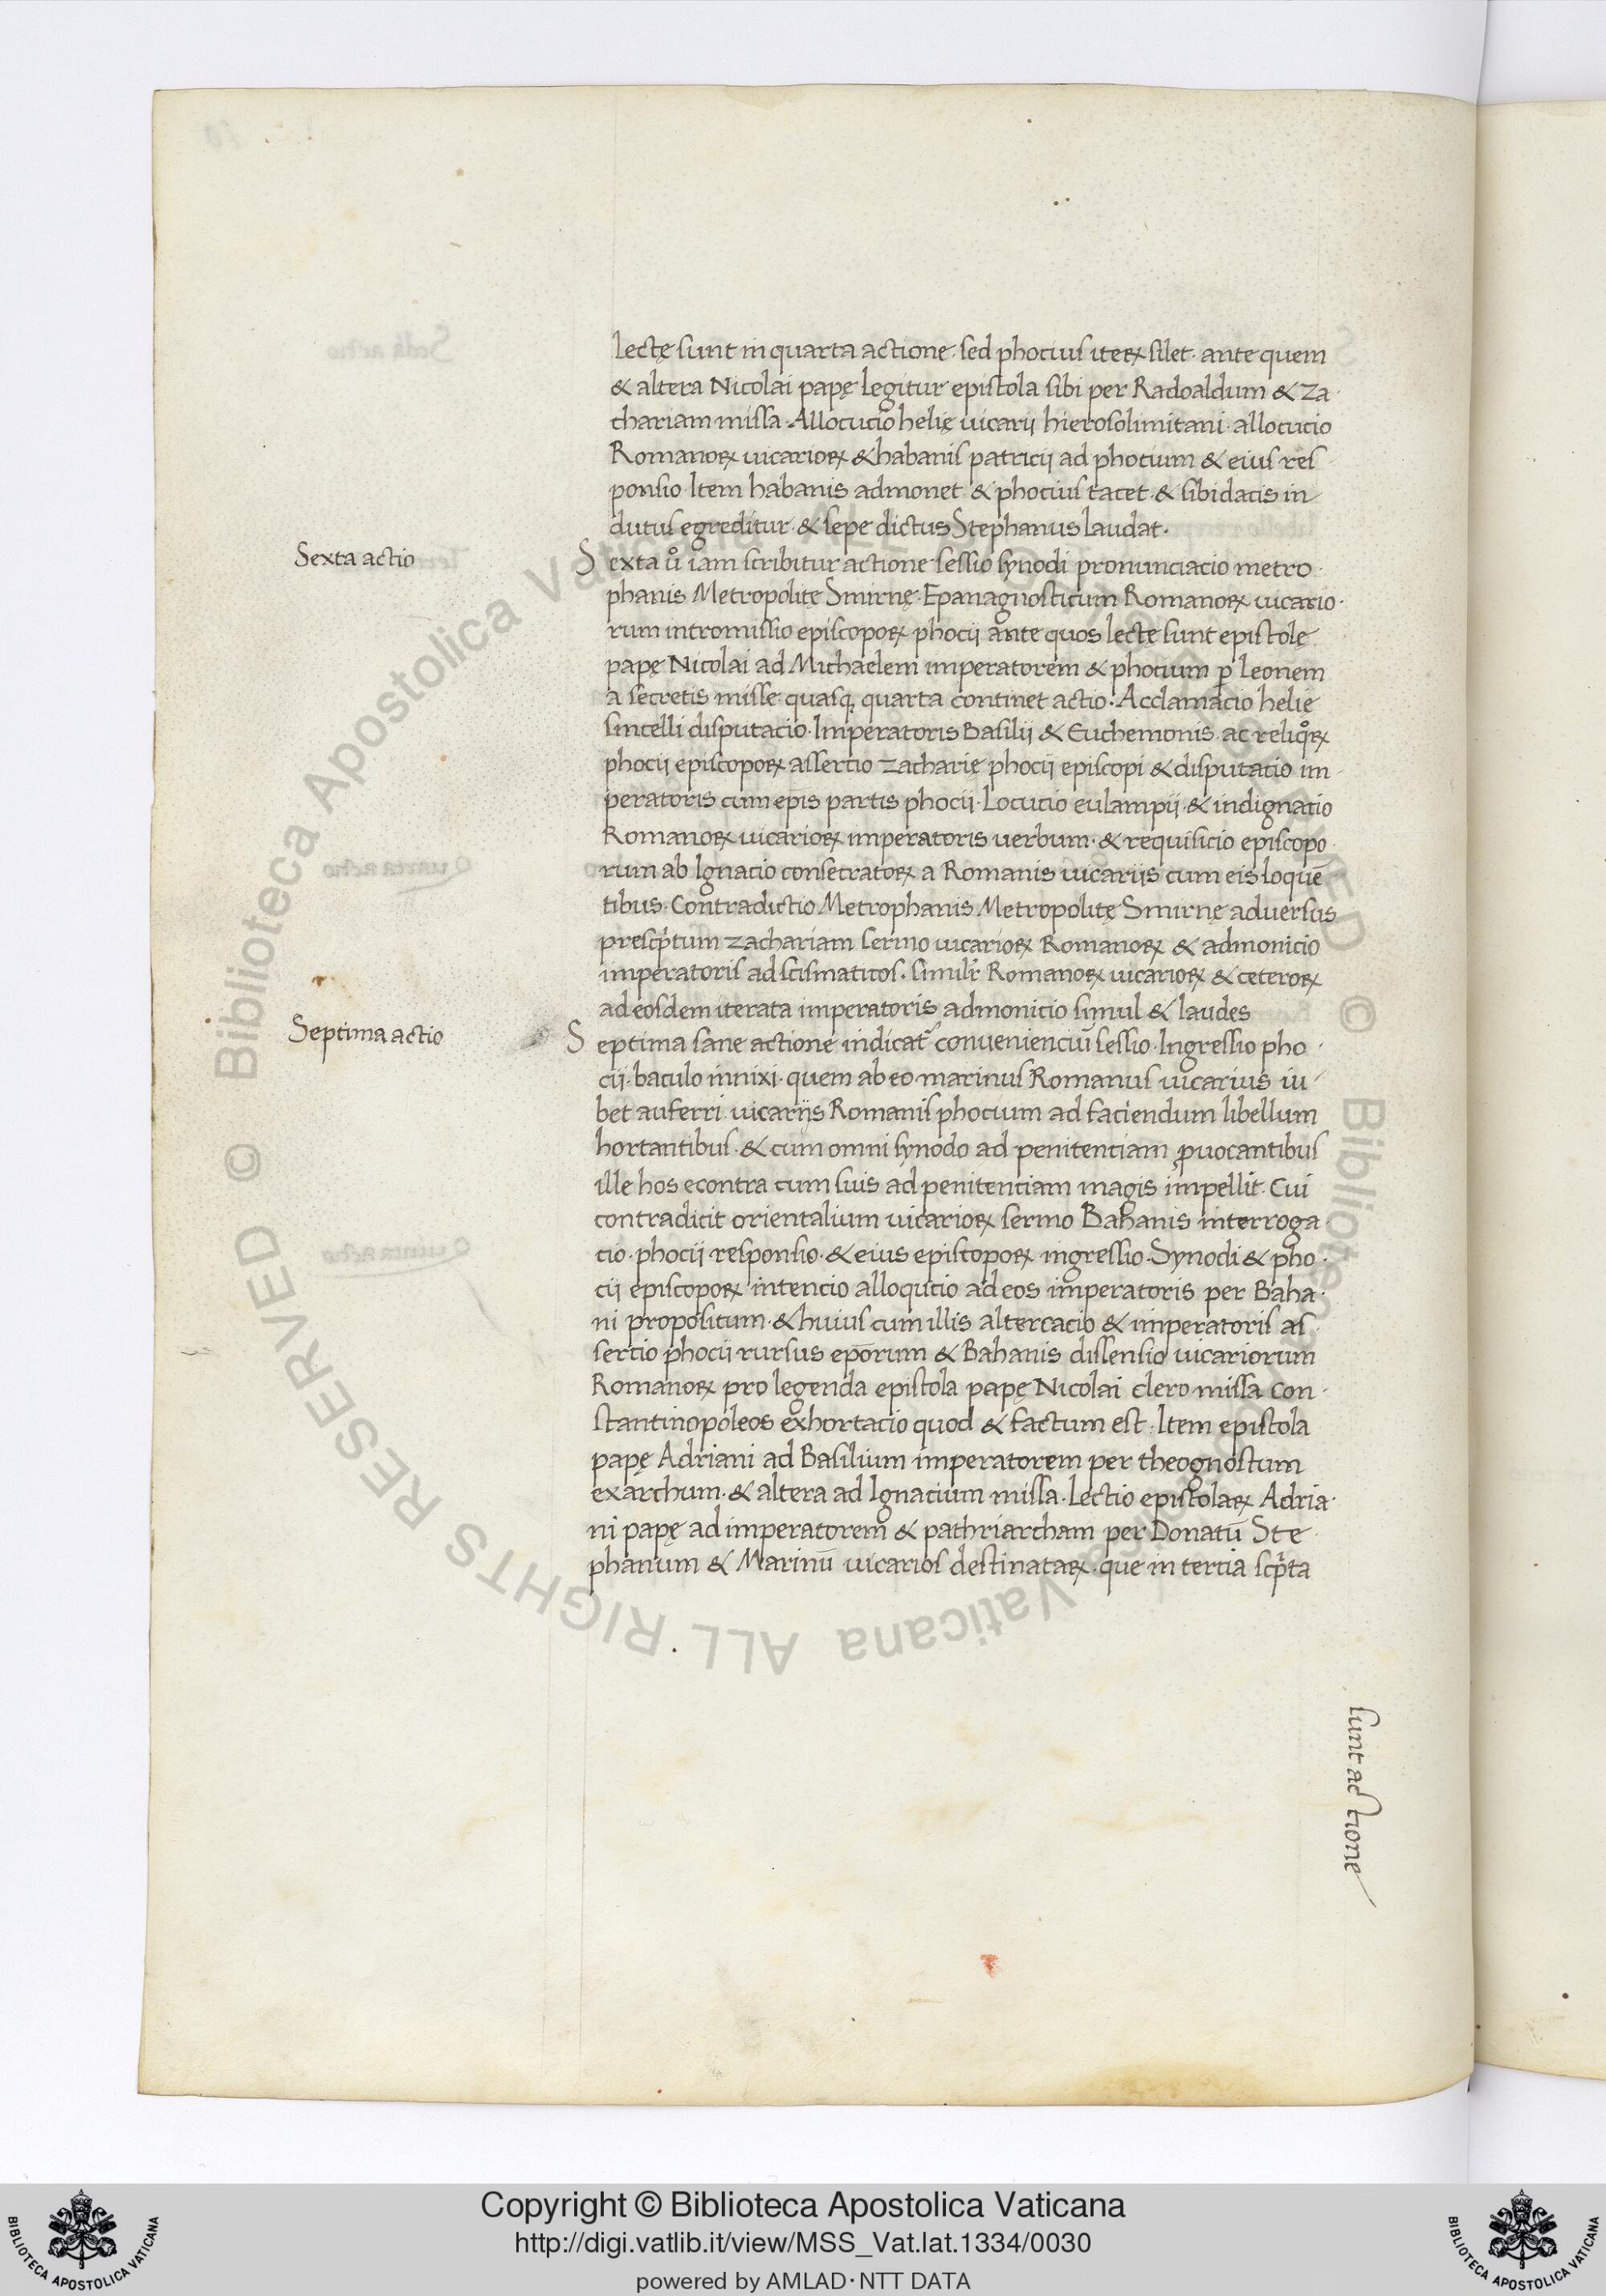 Lectę sunt in quarta actione. sed phocius iterꝝ silet. ante quem
& altera Nicolai papę legitur epistola sibi per Radoaldum & Za
chariam missa. Allocucio helię vicarii hierosolimitani. allocucio
Romanoꝝ vicarioꝝ & habanis patricij ad phocium & eius res
ponsio Item habanis admonet. & phocius tacet. & sibi datis in
dutus egreditur. & sepe dictus Stephanus laudat.
Sexta actio
Sexta uͦ iam scribitur actione sessio synodi pronunciacio metro
phanis Metropolitę Smirnę. Epanagnosticum Romanoꝝ vicario
rum intromissio episcopoꝝ phocij ante quos lectę sunt epistolę
papę Nicolai ad Michaelem imperatorem & phocium ꝑ Leonem
a secretis misse. quasq; quarta continet actio. Acclamacio helię
sincelli disputacio. Imperatoris Basilij & Euchemonis. ac reliqͦꝝ
phocij episcopoꝝ assercio zacharię phocij episcopi & disputatio im
peratoris cum ep̄is partis phocij. Locucio eulampij. & indignatio
Romanoꝝ vicarioꝝ imperatoris verbum. & requisicio episcopo
rum ab Ignacio consecratoꝝ a Romanis vicariis cum eis loquē
tibus. Contradictio Metrophanis Metropolitę Smirnę adversus
prescp̍tum zachariam sermo vicarioꝝ Romanoꝝ & admonicio
imperatoris ad scismaticos. simulr̍ Romanoꝝ vicarioꝝ & ceteroꝝ
ad eosdem iterata imperatoris admonicio simul & laudes
Septima actio
Septima sane actione indicat᷑ convenienciū sessio. Ingressio pho
cij. baculo innixi. quem ab eo marinus Romanus vicarius iu
bet auferri. vicarijs Romanis phocium ad faciendum libellum
hortantibus. & cum omni synodo ad penitenciam ꝓvocantibus
ille hos econtra cum suis ad penitenciam magis impellit. Cui
contradicit orientalium vicarioꝝ sermo Bahanis interroga
cio. phocij responsio. & eius episcopoꝝ ingressio. Synodi & pho
cij episcopoꝝ intencio alloqutio ad eos imperatoris per Baha
ni propositum. & huius cum illis altercacio & imperatoris as
sercio phocij rursus ep̄orum & Bahanis dissensio vicariorum
Romanoꝝ pro legenda epistola papę Nicolai clero missa Con
stantinopoleos exhortacio quod & factum est. Item epistola
papę Adriani ad Basilium imperatorem per theognostum
exarchum. & altera ad Ignacium missa. Lectio epistolaꝝ Adria
ni papę ad imperatorem & pathriarcham per Donatū Ste
phanum & Marinū vicarios destinataꝝ. que in tercia scp̍ta
sunt actione
Copyright © Biblioteca Apostolica Vaticana
http://digi.vatlib.it/view/MSS_Vat.lat.1334/0030
powered by AMLAD·NTT DATA
BIBLIOTECA APOSTOLICA VATICANA
BIBLIOTECA APOSTOLICA VATICANA
© Biblioteca Apostolica Vaticana ALL RIGHTS RESERVED © Biblioteca Apostolica Vaticana ALL RIGHTS RESERVED